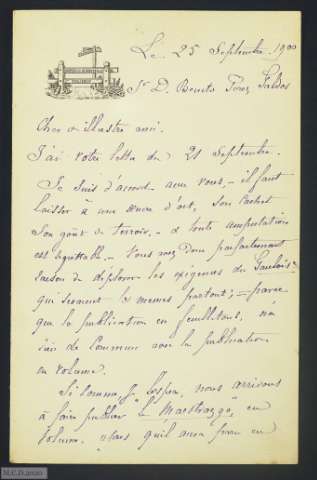 Le 25 Septembre 1900
Sr D. Benito Perez Galdos
Cher & illustre ami.
J'ai votre lettre du 21 Septembre.
Je suis d'accord avec vous, - il faut
laisser à une œuvre d'art, son cachet
son goût de terroir, - & toute amputation
est regrettable. - Vous avez donc parfaitement
raison de déplorer les exigences du Gaulois
qui seraient les mêmes partout; - parce
que la publication en feuilletons, n'a
rien de commun avec la publication
en volume.
Si comme j'espère, nous arrivons
à faire publier le Maestrazgo, en
volume, alors qu'il aura paru en